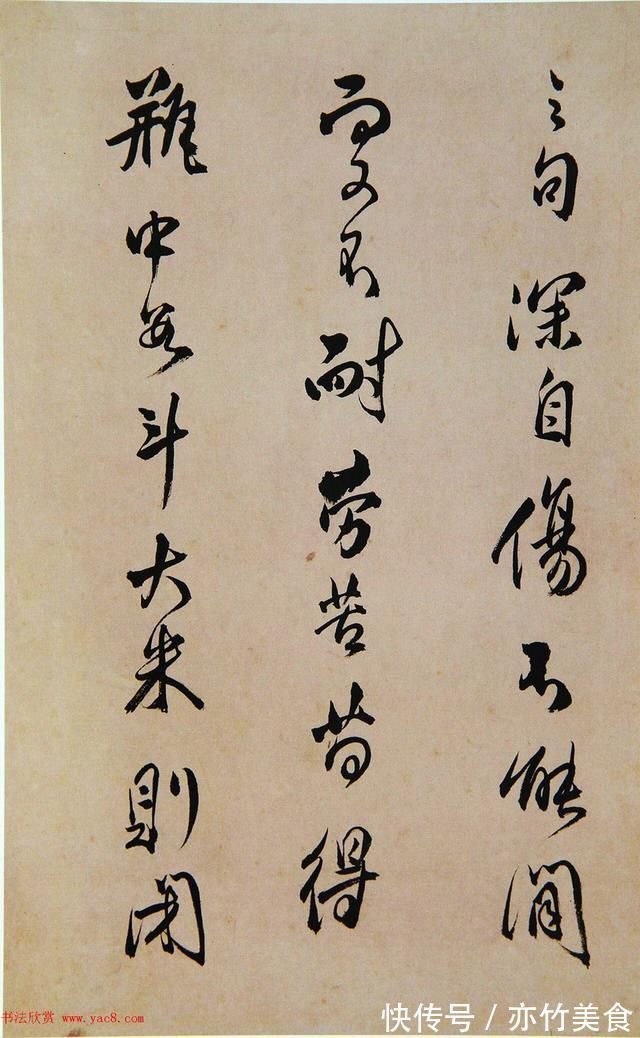 之句深自傷不能閒
而又不耐勞苦苟得
瓶中斗大米則閉
书法欣赏 www.yac8.com
快传号/亦竹美食